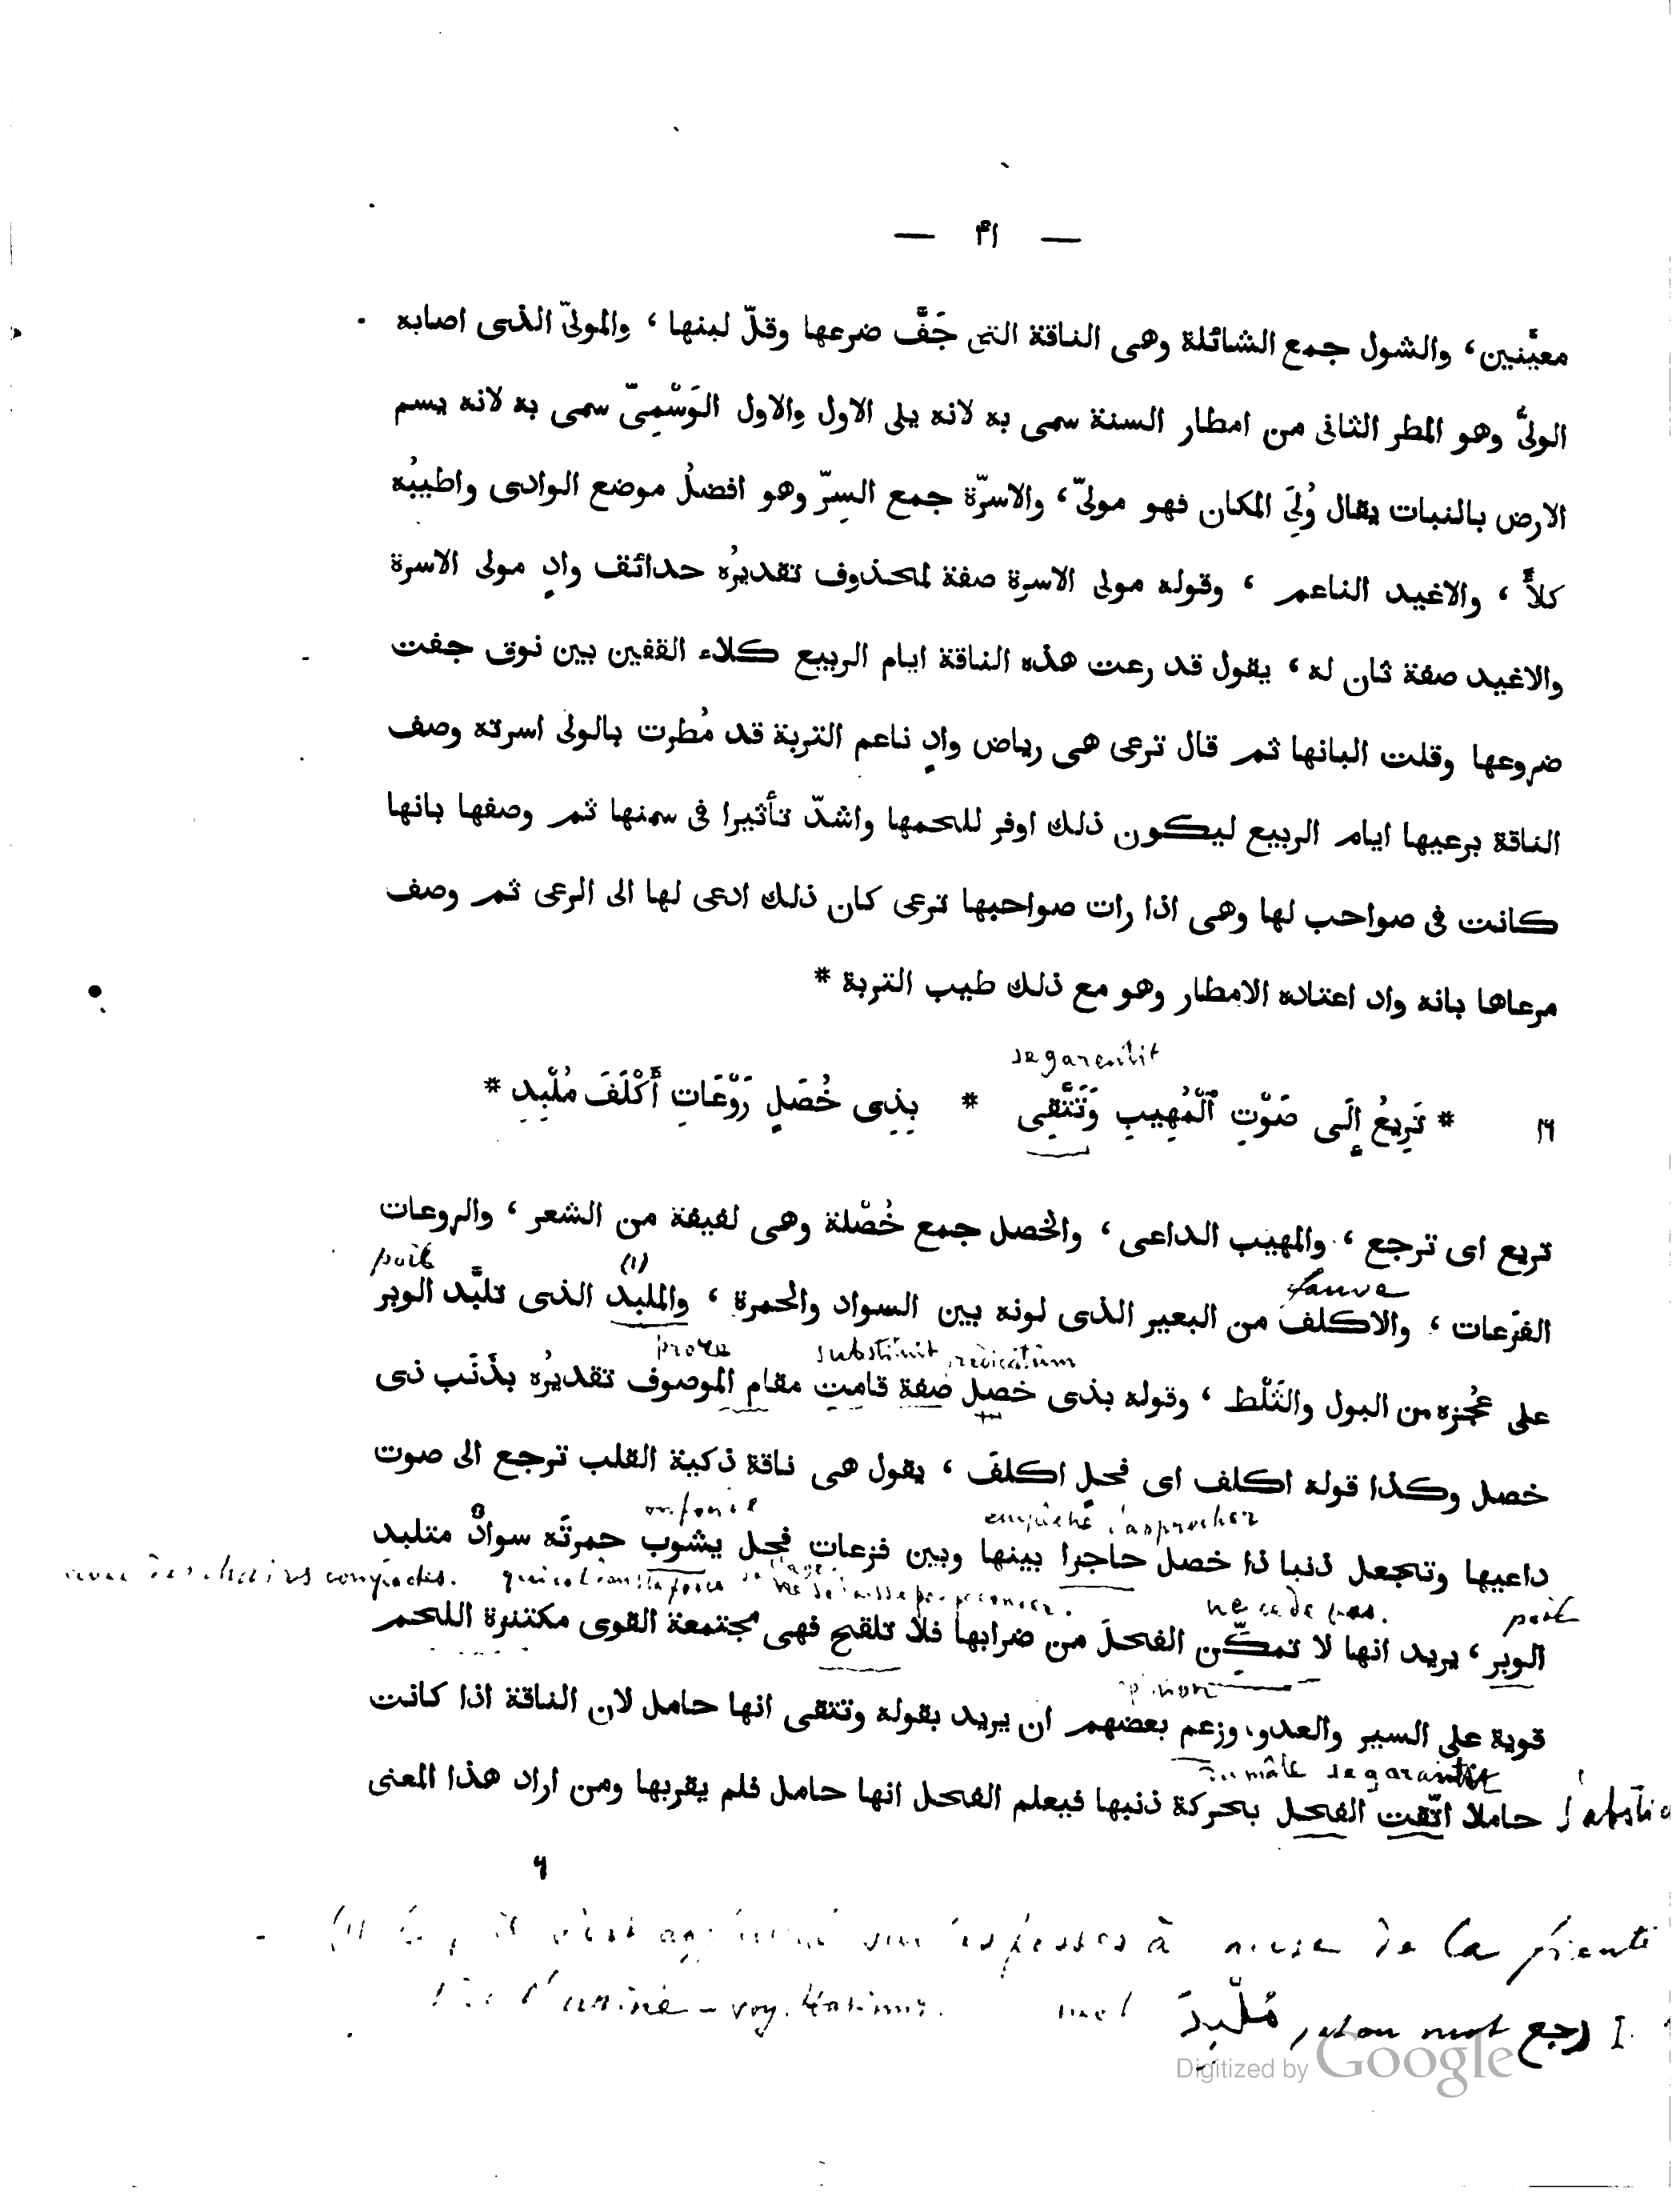 — ٤١ —
معيَّنين، والشول جمع الشائلة وهى الناقة التى جَفَّ ضرعها وقلّ لبنها، والمولىّ الذى اصابه
الولىُّ وهو المطر الثانى من امطار السنة سمى به لانه يلى الاول والاول الوَسْمِىّ سمى به لانه يسم
الارض بالنبات يقال وُلِىَ المكان فهو مولىّ، والاسرّة جمع السِرّ وهو افضلُ موضع الوادى واطيبُه
كلأً، والاغيد الناعم، وقوله مولى الاسرة صفة لمحذوف تقديرُه حدائق وادٍ مولى الاسرة
والاغيد صفة ثان له، يقول قد رعت هذه الناقة ايام الربيع كلاء القفين بين نوق جفت
ضروعها وقلت البانها ثم قال ترعى هى رياض وادٍ ناعم التربة قد مُطرت بالولى اسرته وصف
الناقة برعيها ايام الربيع ليكون ذلك اوفر للحمها واشدّ تأثيرا فى سمنها ثم وصفها بانها
كانت فى صواحب لها وهى اذا رات صواحبها ترعى كان ذلك ادعى لها الى الرعى ثم وصف
مرعاها بانه واد اعتاده الامطار وهو مع ذلك طيب التربة *
se garentit
١٦ * تَرِيعُ إِلَى صَوْتِ ٱلْمُهِيبِ وَتَتَّقِى * بِذِى خُصَلٍ رَوْعَاتِ أَكْلَفَ مُلْبِدِ *
تريع اى ترجع، والمهيب الداعى، والخصل جمع خُصْلة وهى لفيفة من الشعر، والروعات
fauve (1) poil
الفزعات، والاكلف من البعير الذى لونه بين السواد والحمرة، والملبدُ الذى تلبَّد الوبر
substituit
على عُجزه من البول والثَلْط، وقوله بذى خصل صفة قامت مقام الموصوف تقديرُه بذَنَب ذى
خصل وكذا قوله اكلف اى فحلٍ اكلفَ، يقول هى ناقة ذكية القلب ترجع الى صوت
داعيها وتجعل ذنبا ذا خصل حاجرا بينها وبين فزعات فحل يشوب حمرتَه سوادٌ متلبد
poil ne cède pas.
الوبر، يريد انها لا تمكّن الفحلَ من ضرابها فلا تلقح فهى مجتمعة القوى مكتنزة اللحم
قوية على السير والعدو، وزعم بعضهم ان يريد بقوله وتتقى انها حامل لان الناقة اذا كانت
mâle se garantit
حاملا اتّقت الفحل بحركة ذنبها فيعلم الفحل انها حامل فلم يقربها ومن اراد هذا المعنى
٦
de la fiente
l'urine – voy.
مُلْبِدَ
رجع
Digitized by Google